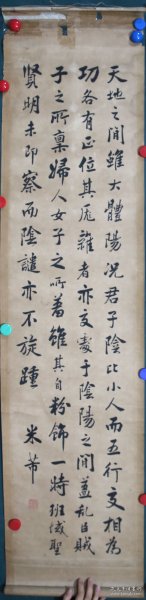 天地之間雖大體陽況君子陰比小人而五行交相為
功各有正位其厖雜者亦交處于陰陽之間蓋亂臣賊
子之所稟婦人女子之所着雖其自粉飾一時班彧聖
賢明未即察而陰譴亦不旋踵 米芾